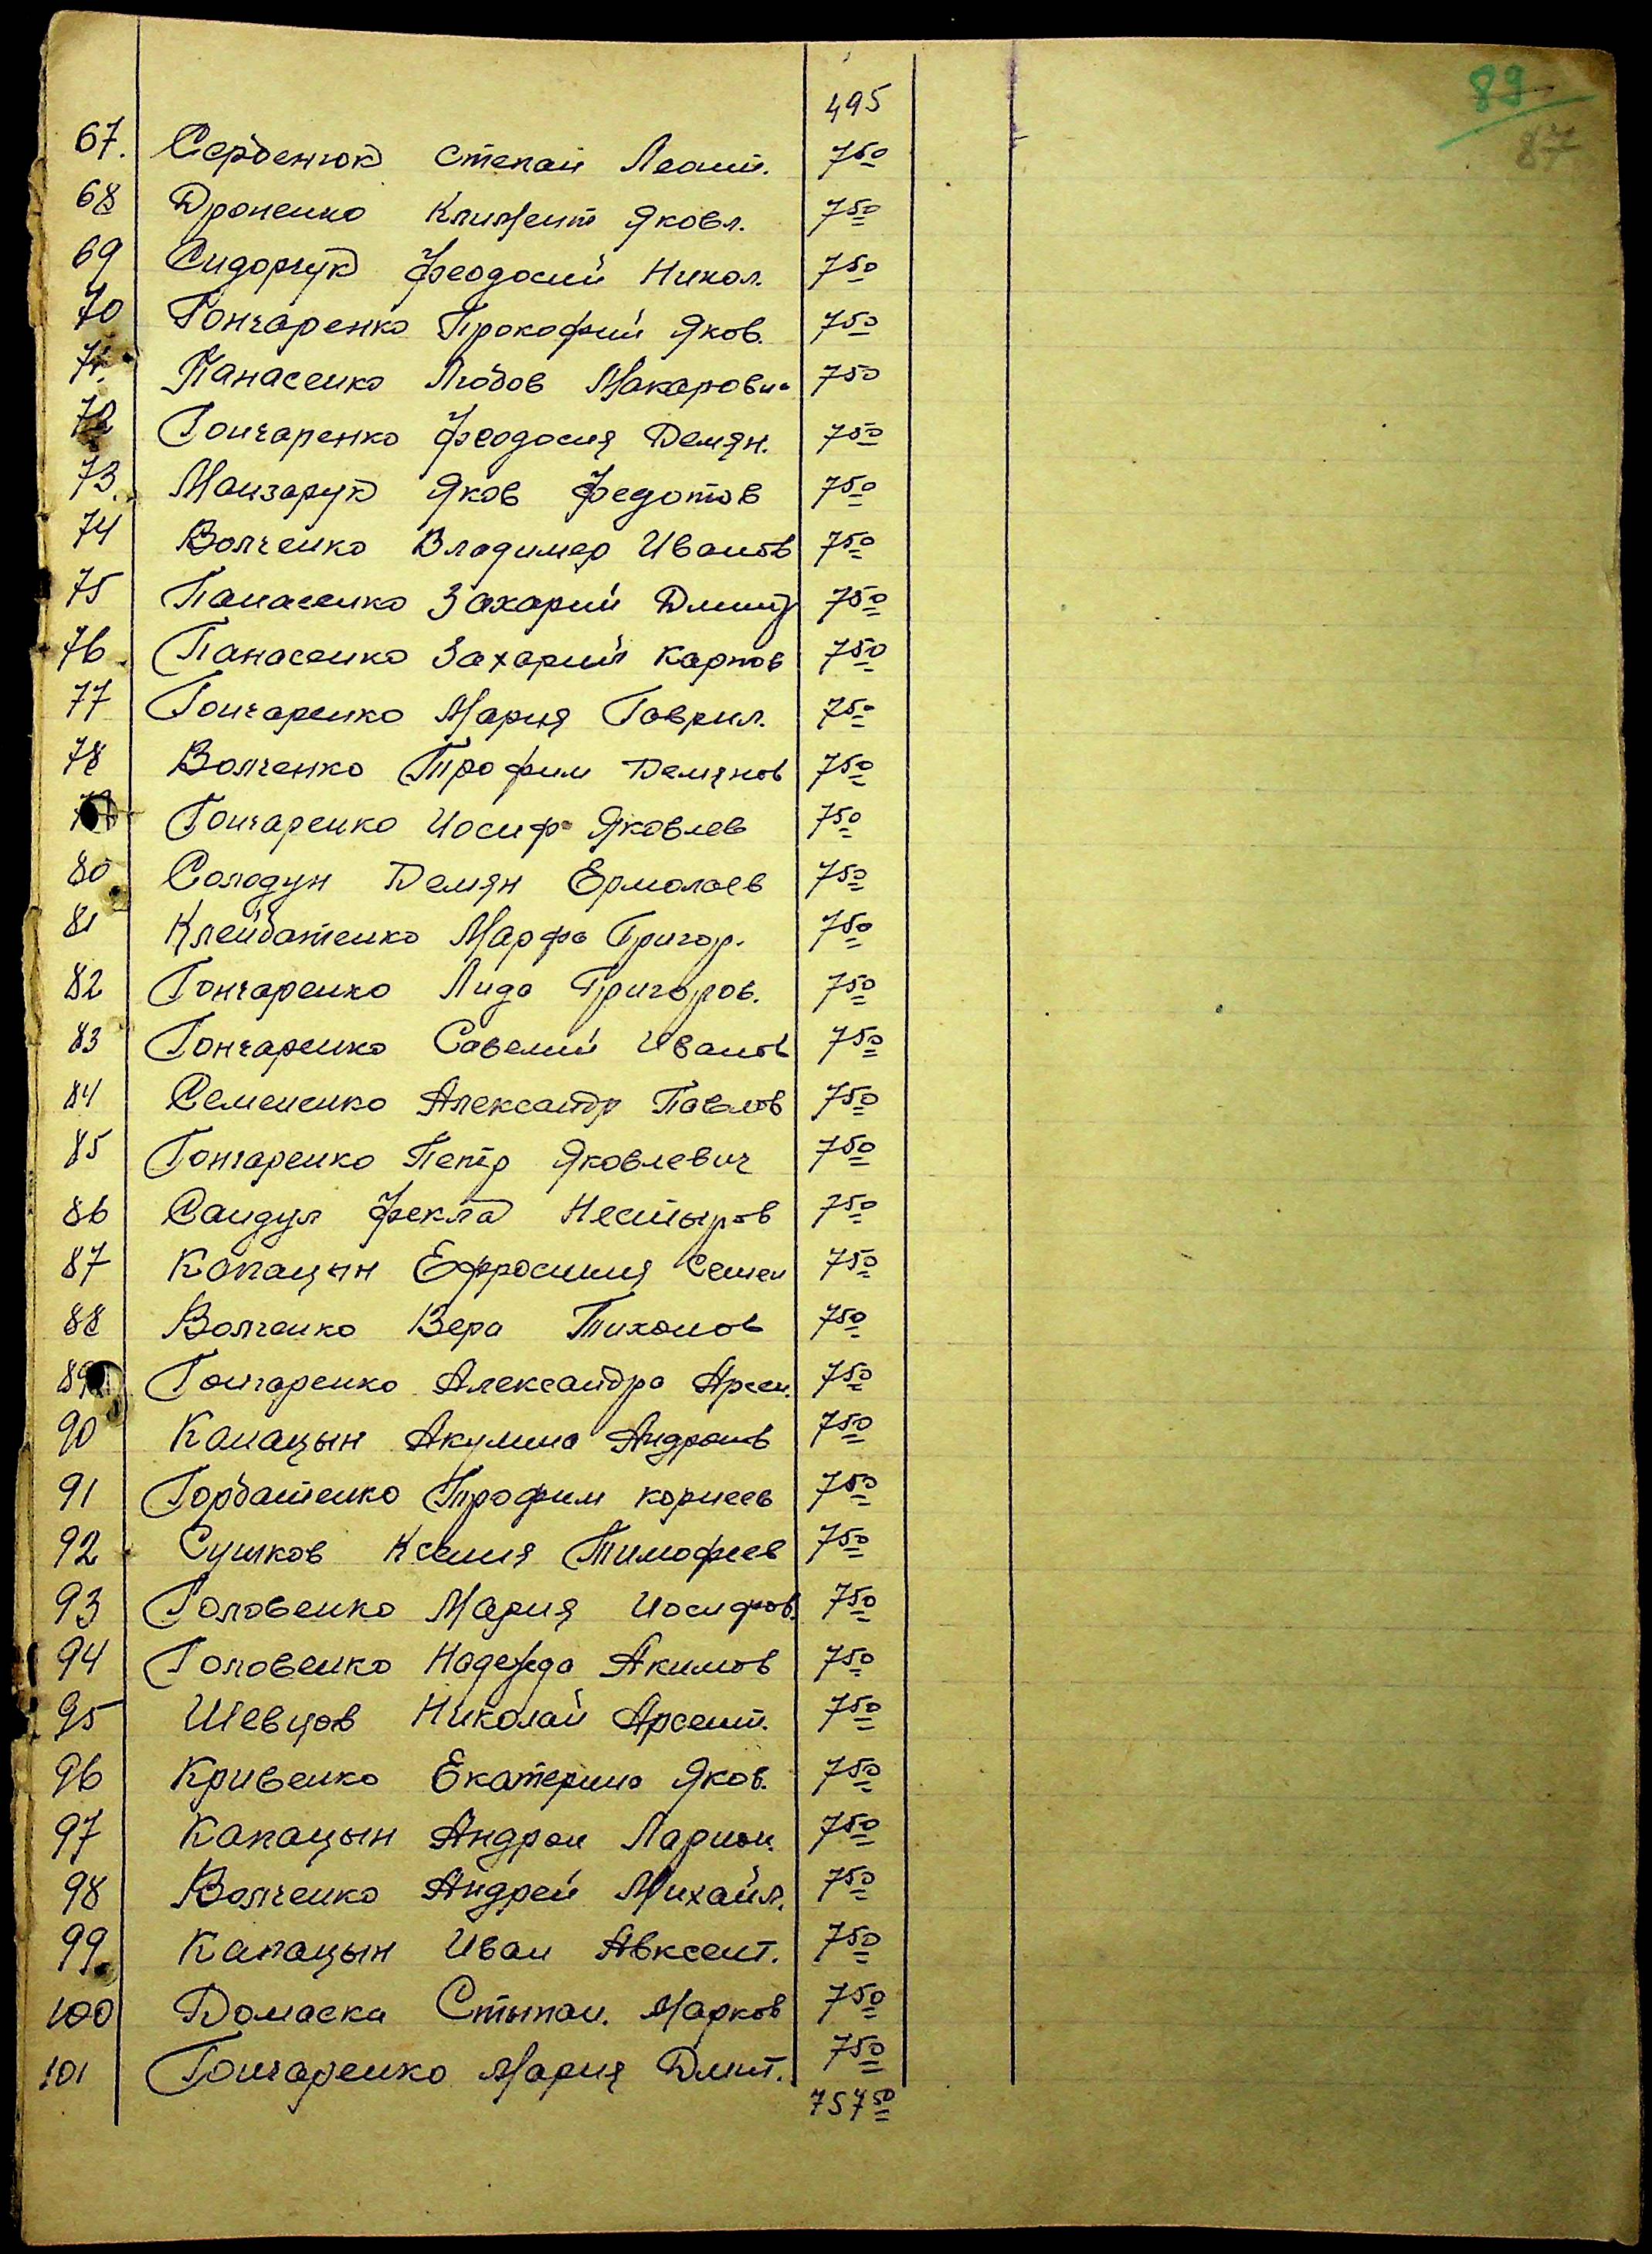 89
87
495
67. Сербенюк Степан Леонт. 7 50
68 Дроненко Климент Яковл. 7 50
69 Сидорчук Феодосий Никол. 7 50
70 Гончаренко Прокофий Яков. 7 50
71. Панасенко Любов Макаровн. 7 50
72 Гончаренко Феодосия Демян. 7 50
73. Манзарук Яков Федотов 7 50
74 Волченко Владимер Иванов 7 50
75 Панасенко Захарий Дмитр 7 50
76. Панасенко Захарий Карпов 7 50
77 Гончаренко Мария Гаврил. 7 50
78 Волченко Трофим Демянов 7 50
Гончаренко Иосиф Яковлев 7 50
80 Солодун Демян Ермолаев 7 50
81 Клейбатенко Марфа Григор. 7 50
82 Гончаренко Лида Григоров. 7 50
83 Гончаренко Савелий Иванов 7 50
84 Семененко Александр Павлов 7 50
85 Гончаренко Петр Яковлевич 7 50
86 Сандул Фекла Нестыров 7 50
87 Капацын Ефросиния Семен 7 50
88 Волченко Вера Тихонов 7 50
89 Гончаренко Александра Арсен. 7 50
90 Капацын Акулина Андронов 7 50
91 Горбатенко Трофим Корнеев 7 50
92 Сушков Ксения Тимофеев 7 50
93 Головенко Мария Иосифов. 7 50
94 Головенко Надежда Акимов 7 50
95 Шевцов Николай Арсент. 7 50
96 Кривенко Екатерина Яков. 7 50
97 Капацын Андрон Ларион. 7 50
98 Волченко Андрей Михайл. 7 50
99 Капацын Иван Авксент. 7 50
100 Домаска Стыпан. Марков 7 50
101 Гончаренко Мария Дмит. 7 50
757 50